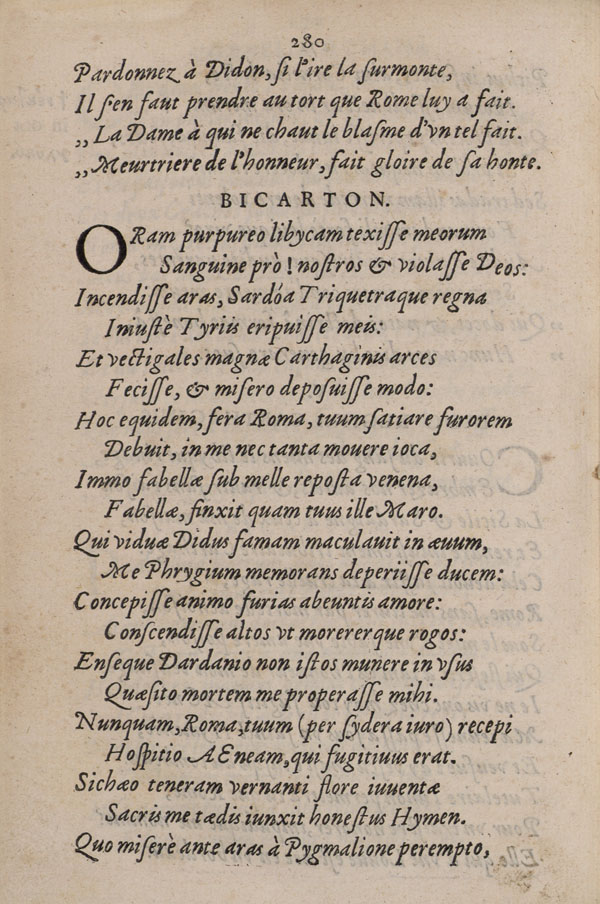 280
Pardonnez à Didon, ſi l'ire la ſurmonte,
Il ſ'en faut prendre au tort que Rome luy a fait.
„ La Dame à qui ne chaut le blaſme d'vn tel fait.
„ Meurtriere de l'honneur, fait gloire de ſa honte.
BICARTON.
ORam purpureo libycam texiſſe meorum
Sanguine prò! noſtros & violaſſe Deos:
Incendiſſe aras, Sardóa Triquetraque regna
Iniuſtè Tyriis eripuiſſe meis:
Et vectigales magnæ Carthaginis arces
Feciſſe, & miſero depoſuiſſe modo:
Hoc equidem, fera Roma, tuum ſatiare furorem
Debuit, in me nec tanta mouere ioca,
Immo fabellæ ſub melle repoſta venena,
Fabellæ, finxit quam tuus ille Maro.
Qui viduæ Didus famam maculauit in æuum,
Me Phrygium memorans deperiiſſe ducem:
Concepiſſe animo furias abeuntis amore:
Conſcendiſſe altos vt morererque rogos:
Enſeque Dardanio non iſtos munere in vſus
Quæſito mortem me properaſſe mihi.
Nunquam, Roma, tuum (per ſydera iuro) recepi
Hoſpitio AEneam, qui fugitiuus erat.
Sichæo teneram vernanti flore iuuentæ
Sacris me tædis iunxit honeſtus Hymen.
Quo miſerè ante aras à Pygmalione perempto,